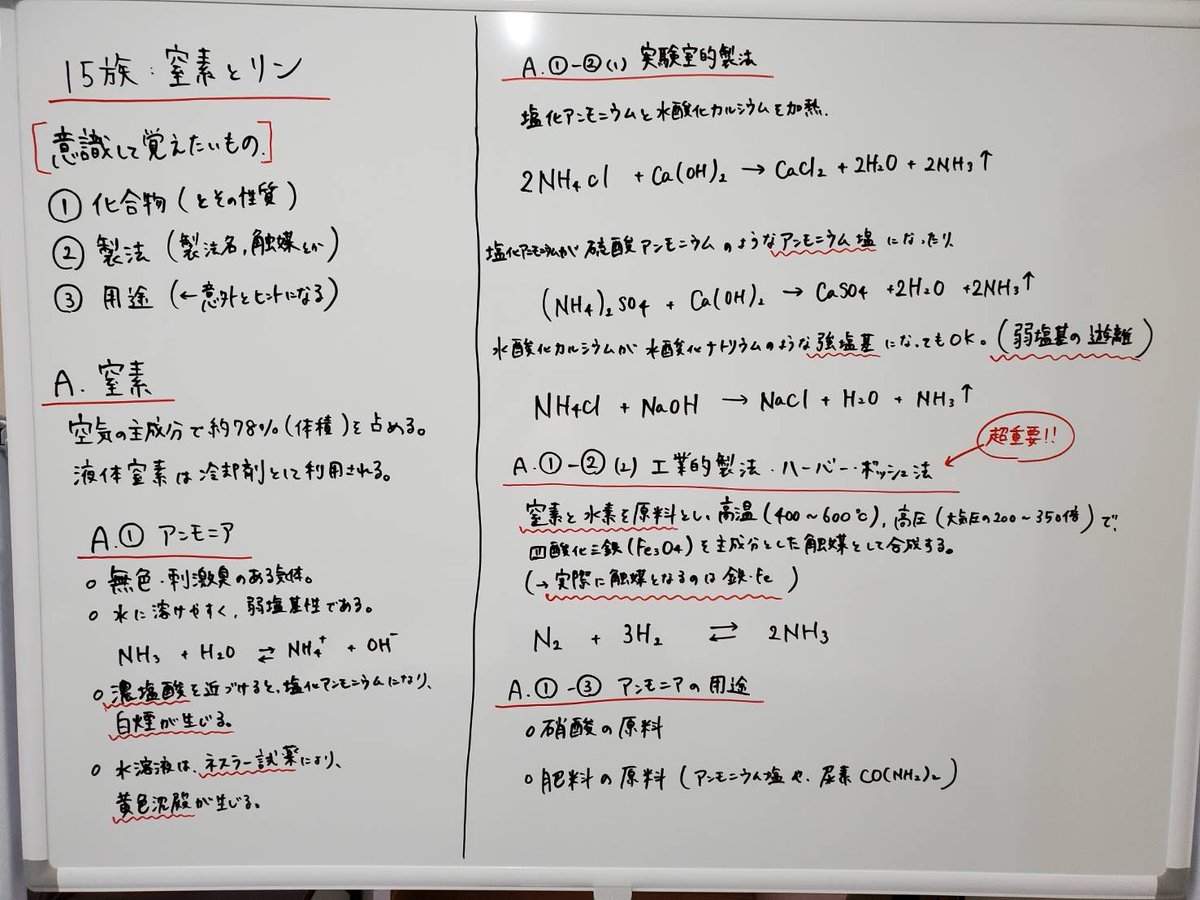 15族:窒素とリン
[意識して覚えたいもの.]
① 化合物 (とその性質)
② 製法 (製法名,触媒とか)
③ 用途 (←意外とヒントになる)
A. 窒素
空気の主成分で約78%(体積)を占める。
液体窒素は冷却剤として利用される。
A.① アンモニア
○ 無色・刺激臭のある気体。
○ 水に溶けやすく、弱塩基性である。
NH₃ + H₂O ⇄ NH₄⁺ + OH⁻
○ 濃塩酸を近づけると、塩化アンモニウムになり、
白煙が生じる。
○ 水溶液は、ネスラー試薬により、
黄色沈殿が生じる。
A.①-②(1) 実験室的製法
塩化アンモニウムと水酸化カルシウムを加熱.
2NH₄Cl + Ca(OH)₂ → CaCl₂ + 2H₂O + 2NH₃↑
塩化アンモニウムが硫酸アンモニウムのようなアンモニウム塩になったり、
(NH₄)₂SO₄ + Ca(OH)₂ → CaSO₄ + 2H₂O + 2NH₃↑
水酸化カルシウムが水酸化ナトリウムのような強塩基になってもOK。(弱塩基の遊離)
NH₄Cl + NaOH → NaCl + H₂O + NH₃↑
超重要!!
A.①-②(2) 工業的製法・ハーバー・ボッシュ法
窒素と水素を原料とし、高温(400~600℃),高圧(大気圧の200~350倍)で、
四酸化三鉄(Fe₃O₄)を主成分とした触媒として合成する。
(→実際に触媒となるのは鉄・Fe)
N₂ + 3H₂ ⇄ 2NH₃
A.①-③ アンモニアの用途
○ 硝酸の原料
○ 肥料の原料(アンモニウム塩や、尿素CO(NH₂)₂)